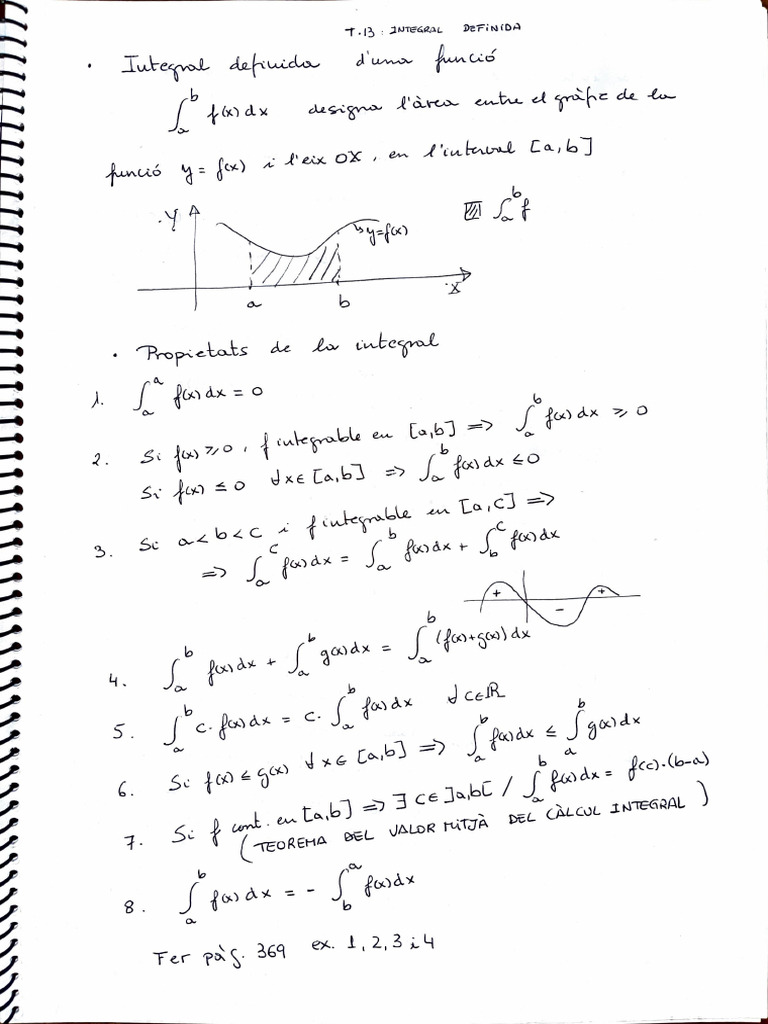 T.13: INTEGRAL DEFINIDA
· Integral definida d'una funció
∫ₐᵇ f(x) dx designa l'àrea entre el gràfic de la
funció y = f(x) i l'eix OX, en l'interval [a,b]
Y
y=f(x)
∫ₐᵇ f
a b X
· Propietats de la integral
1. ∫ₐᵃ f(x) dx = 0
2. Si f(x) ≥ 0, f integrable en [a,b] => ∫ₐᵇ f(x) dx ≥ 0
Si f(x) ≤ 0 ∀x∈[a,b] => ∫ₐᵇ f(x) dx ≤ 0
3. Si a < b < c i f integrable en [a,c] =>
=> ∫ₐᶜ f(x) dx = ∫ₐᵇ f(x) dx + ∫_b^c f(x) dx
+ - +
4. ∫ₐᵇ f(x) dx + ∫ₐᵇ g(x) dx = ∫ₐᵇ (f(x)+g(x)) dx
5. ∫ₐᵇ c. f(x) dx = c. ∫ₐᵇ f(x) dx ∀c∈ℝ
6. Si f(x) ≤ g(x) ∀x∈[a,b] => ∫ₐᵇ f(x) dx ≤ ∫ₐᵇ g(x) dx
7. Si f cont. en [a,b] => ∃ c∈]a,b[ / ∫ₐᵇ f(x) dx = f(c)·(b-a)
(TEOREMA DEL VALOR MITJÀ DEL CÀLCUL INTEGRAL)
8. ∫ₐᵇ f(x) dx = - ∫_b^a f(x) dx
Fer pàg. 369 ex. 1, 2, 3 i 4